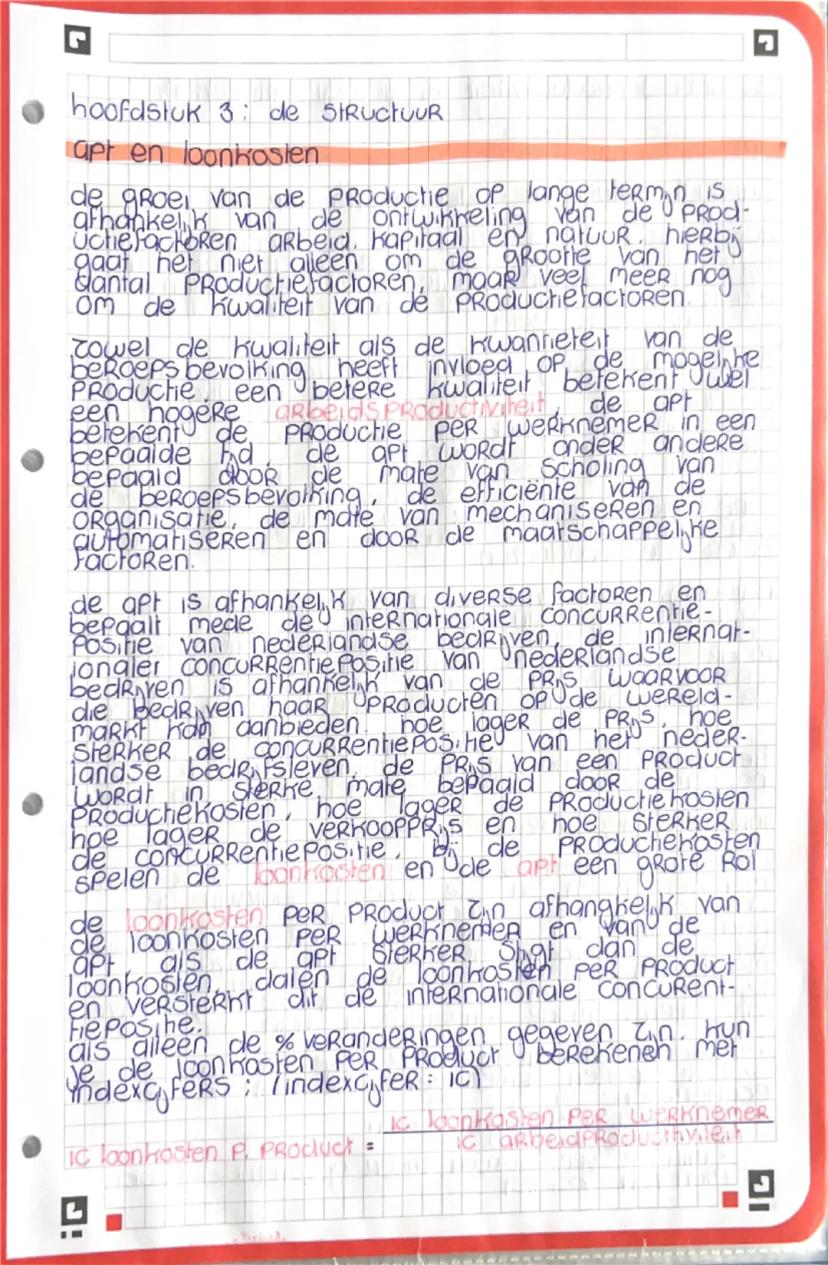 hoofdstuk 3: de structuur
apt en loonkosten
de groei van de productie op lange termijn is
afhankelijk van de ontwikkeling van de prod-
uctiefactoren arbeid, kapitaal en natuur. hierbij
gaat het niet alleen om de grootte van het
aantal productiefactoren, maar veel meer nog
om de kwaliteit van de productiefactoren.
zowel de kwaliteit als de kwantiteit van de
beroepsbevolking heeft invloed op de mogelijke
productie. een betere kwaliteit betekent wel
een hogere arbeidsproductiviteit. de apt
betekent de productie per werknemer in een
bepaalde tijd. de apt wordt onder andere
bepaald door de mate van scholing van
de beroepsbevolking, de efficiënte van de
organisatie, de mate van mechaniseren en
automatiseren en door de maatschappelijke
factoren.
de apt is afhankelijk van diverse factoren en
bepaalt mede de internationale concurrentie-
positie van nederlandse bedrijven. de internat-
ionaler concurrentiepositie van nederlandse
bedrijven is afhankelijk van de prijs waarvoor
die bedrijven haar producten op de wereld-
markt kan aanbieden. hoe lager de prijs, hoe
sterker de concurrentiepositie van het neder-
landse bedrijfsleven. de prijs van een product
wordt in sterke mate bepaald door de
productiekosten, hoe lager de productiekosten
hoe lager de verkoopprijs en hoe sterker
de concurrentiepositie. bij de productiekosten
spelen de loonkosten en de apt een grote rol
de loonkosten per product zijn afhangkelijk van
de loonkosten per werknemer en van de
apt. als de apt sterker stijgt dan de
loonkosten, dalen de loonkosten per product
en versterkt dit de internationale concurent-
tiepositie.
als alleen de % veranderingen gegeven zijn. kun
je de loonkosten per product berekenen met
indexcijfers: (indexcijfer: ic)
ic loonkosten per werknemer
ic loonkosten p. product =
ic arbeidproductiviteit